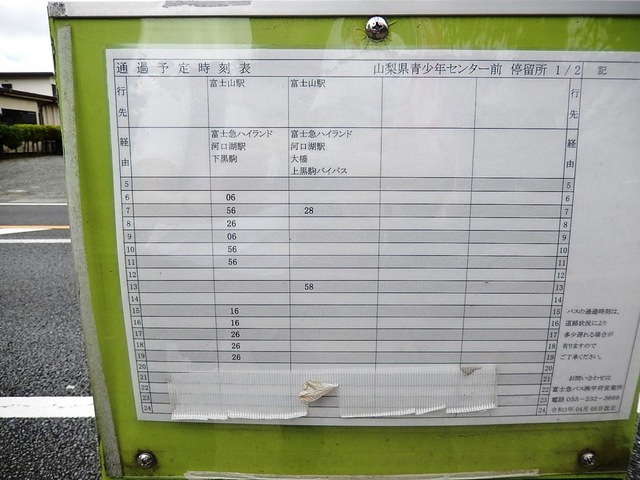 通過予定時刻表 山梨県青少年センター前 停留所 1/2 記
行先 富士山駅 富士山駅 行先
経由 富士急ハイランド 富士急ハイランド 経由
河口湖駅 河口湖駅
下黒駒 大橋
上黒駒バイパス
5 5
6 06 6
7 56 28 7
8 26 8
9 06 9
10 56 10
11 56 11
12 12
13 58 13
14 14
15 16 15 バスの通過時刻は、
16 16 16 道路状況により
17 26 17 多少遅れる場合が
18 26 18 有りますので
19 26 19 ご了承ください。
20 20
21 21 お問い合わせは
22 22 富士急バス㈱甲府営業所
23 23 電話 055-232-3666
24 24 令和2年 04月 05日改正